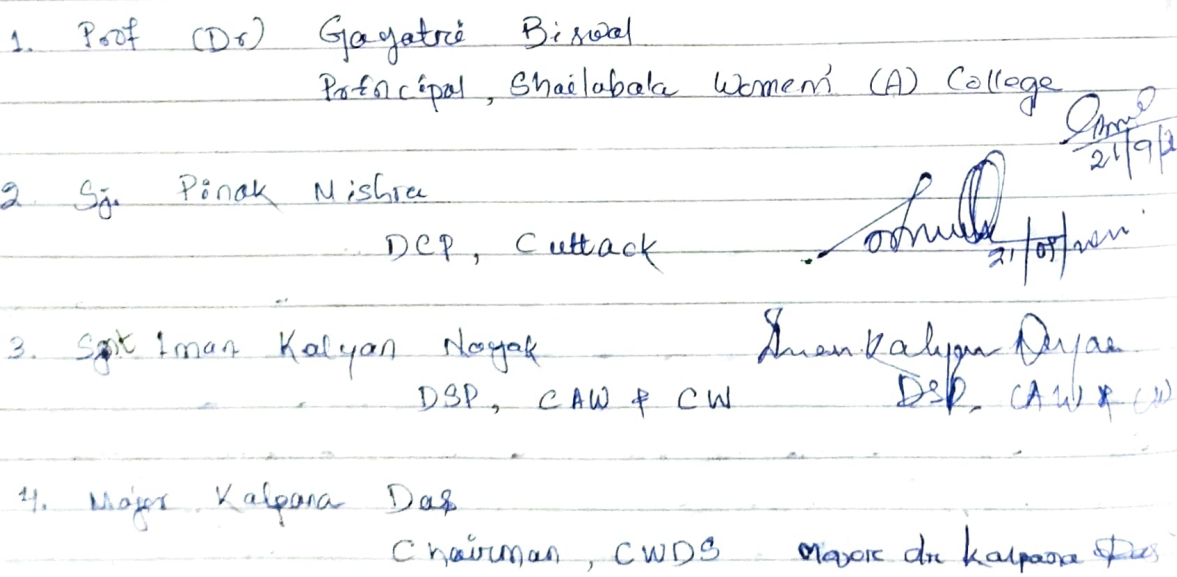 1. Prof (Dr) Gayatri Biswal
Principal, Shailabala Women's (A) College
21/9/2
2. Sj. Pinak Mishra
DCP, Cuttack
21/09/
3. Smt Iman Kalyan Nayak Iman Kalyan Nayak
DSP, CAW & CW DSP, CAW & CW
4. Major Kalpana Das
Chairman, CWDS Major dr Kalpana Das